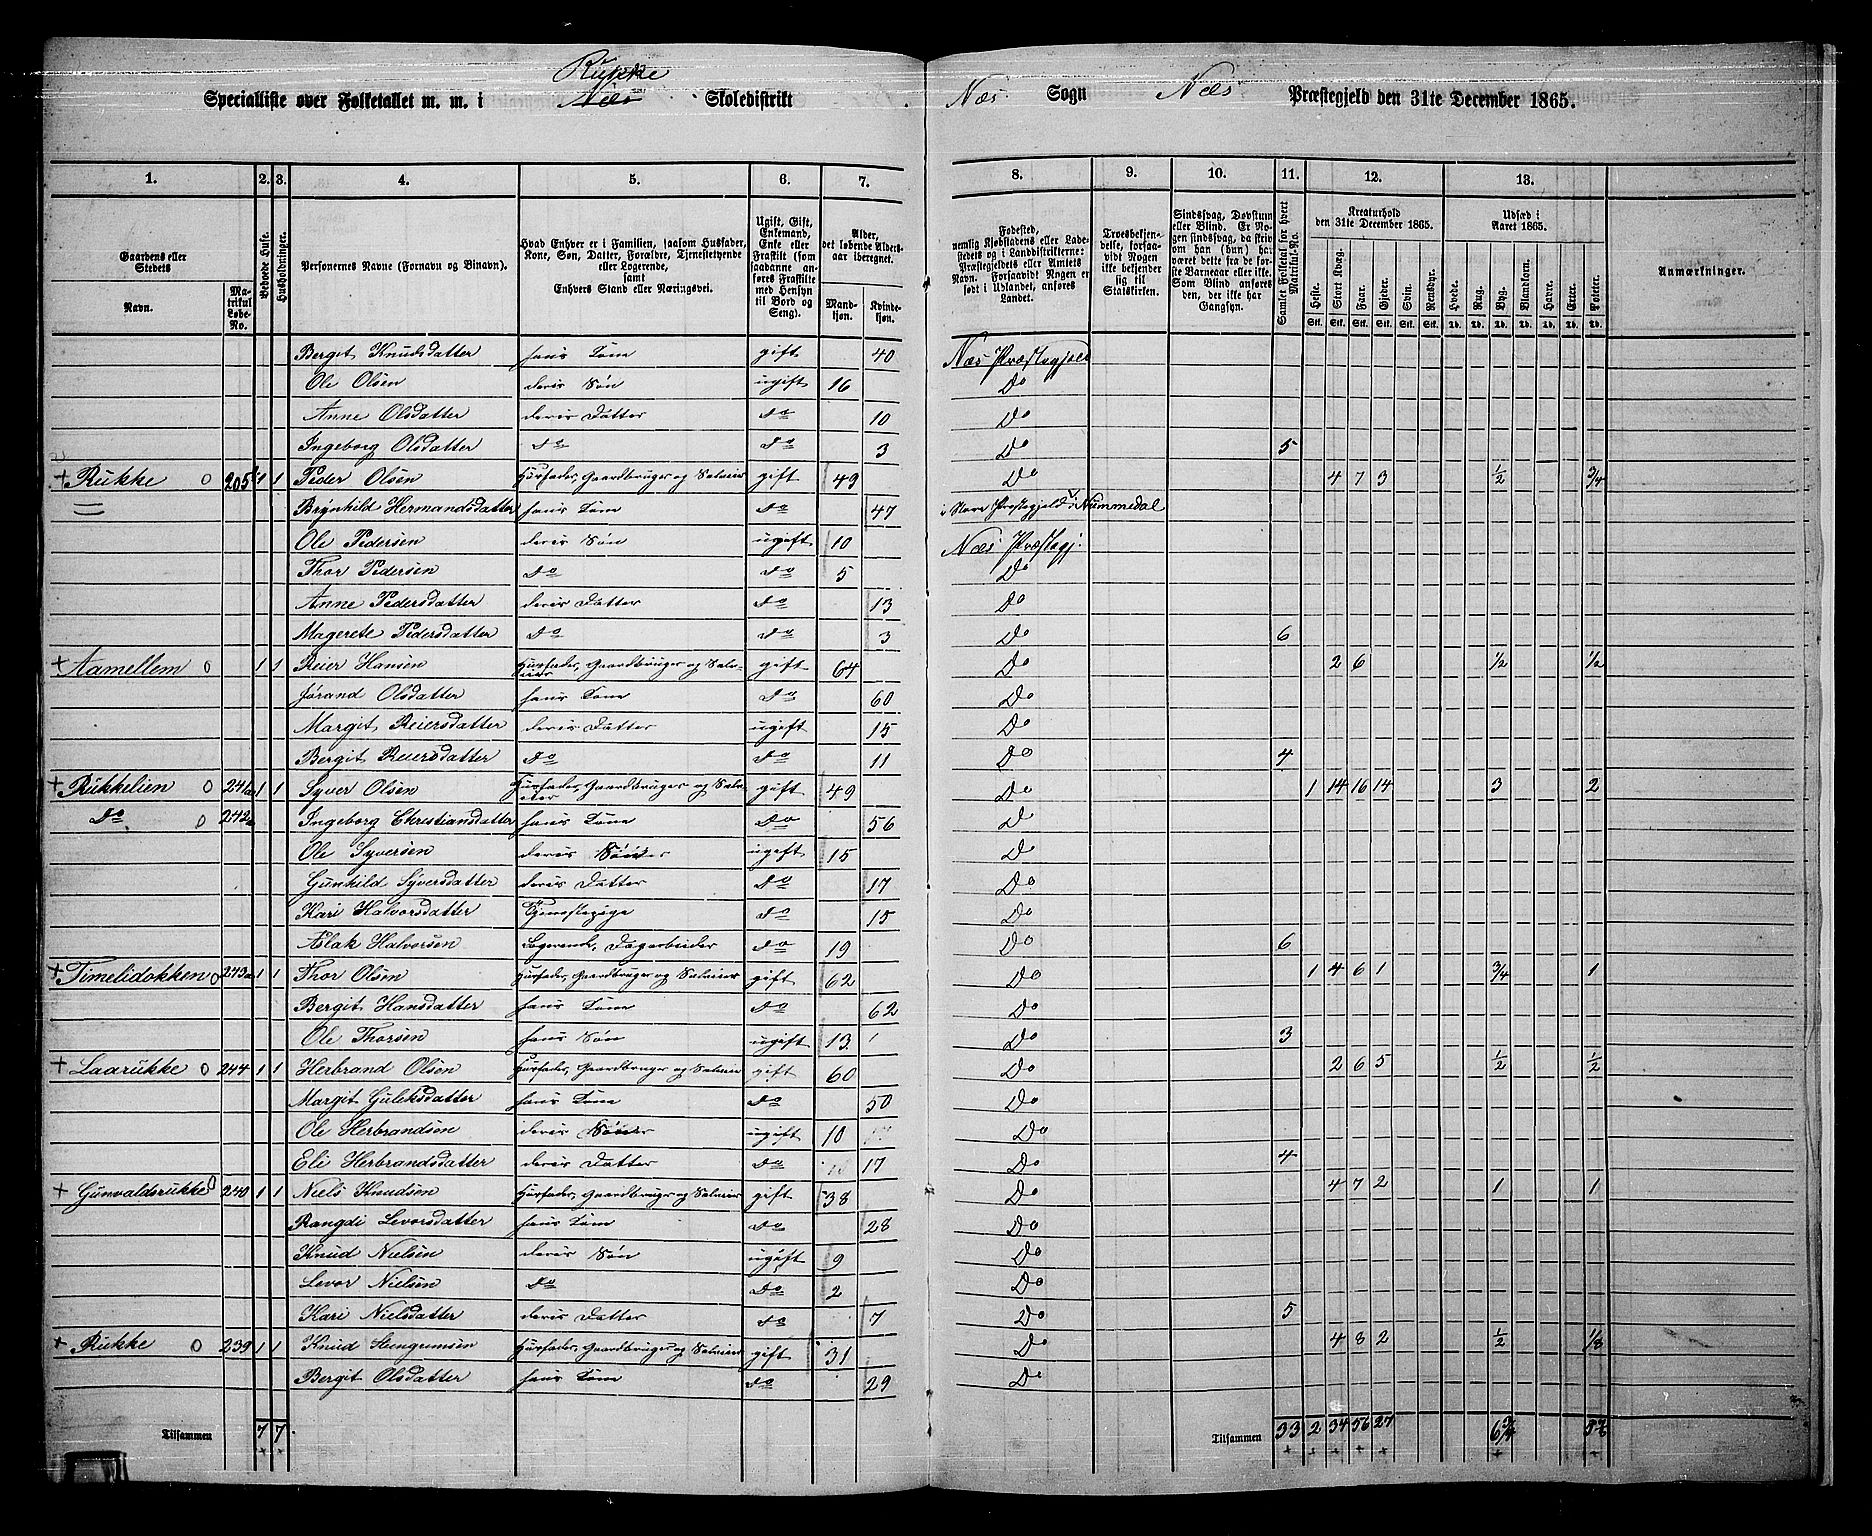 Specialliste over Folketallet m. m. i Rukke Næs Skoledistrikt Næs Sogn Næs Præstegjeld den 31te December 1865.
1. 2. 3. 4. 5. 6. 7. 8. 9. 10. 11. 12. 13.
Gaardens eller Stedets
Navn.
Matrikul Løbe-No.
Beboede Huse.
Husholdninger.
Personernes Navne (Fornavn og Binavn).
Hvad Enhver er i Familien, saasom Husfader, Kone, Søn, Datter, Forældre, Tjenestetyende eller Logerende, samt Enhvers Stand eller Næringsvei.
Ugift, Gift, Enkemand, Enke eller Fraskilt (som saadanne anføres Fraskilte med Hensyn til Bord og Seng).
Alder, det løbende Aldersaar iberegnet.
Mandkjøn.
Kvindekjøn.
Fødested, nemlig Kjøbstadens eller Ladestedets og i Landdistrikterne: Præstegjeldets eller Amtets Navn. Forsaavidt Nogen er født i Udlandet, anføres Landet.
Troesbekjendelse, forsaavidt Nogen ikke bekjender sig til Statskirken.
Sindssvag, Døvstum eller Blind. Er Nogen sindssvag, da skriv om han (hun) har været dette fra de første Barneaar eller ikke. Som Blind anføres den, der ikke har Gangsyn.
Samlet Folketal for hvert Matrikul-No.
Kreaturhold den 31te December 1865.
Heste. Stort Kvæg. Faar. Gjeder. Svin. Rensdyr.
Stk. Stk. Stk. Stk. Stk. Stk.
Udsæd i Aaret 1865.
Hvede. Rug. Byg. Blandkorn. Havre. Erter. Poteter.
Td. Td. Td. Td. Td. Td. Td.
Anmærkninger.
Bergit Knudsdatter hans Kone gift 40 Næs Præstegjeld
Ole Olsen deres Søn ugift 16 Do
Anne Olsdatter deres Datter Do 10 Do
Ingeborg Olsdatter Do Do 3 Do 5
+ Rukke 0 205 1 1 Peder Olsen Husfader, Gaardbruger og Selveier gift 49 Do 4 7 3 1/2 3/4
Brynhild Hermandsdatter hans Kone Do 47 i Præstegjeld i Nummedal
Ole Pedersen deres Søn ugift 10 Næs Præstegj.
Thor Pedersen Do Do 5 Do
Anne Pedersdatter deres Datter Do 13 Do
Magerete Pedersdatter Do Do 3 Do 6
+ Aamellem 0 1 1 Reier Hansen Husfader, Gaardbruger og Selveier gift 64 Do 2 6 1/2 1/2
Jørand Olsdatter hans Kone Do 60 Do
Margit Reiersdatter deres Datter ugift 15 Do
Bergit Reiersdatter Do Do 11 Do 4
+ Rukkelien 0 241a 1 1 Syver Olsen Husfader, Gaardbruger og Selveier gift 49 Do 1 14 16 14 3 2
Do 0 242a Ingeborg Christiansdatter hans Kone Do 56 Do
Ole Syversen deres Søn ugift 15 Do
Gunhild Syversdatter deres Datter Do 17 Do
Kari Halvorsdatter Tjenestepige Do 15 Do
Aslak Halvorsen Logerende, Dagarbeider Do 19 Do 6
+ Timelidokken 0 243a 1 1 Thor Olsen Husfader, Gaardbruger og Selveier gift 62 Do 1 4 6 1 3/4 1
Bergit Hansdatter hans Kone Do 62 Do
Ole Thorsen hans Søn ugift 13 Do 3
+ Laarukke 0 244 1 1 Herbrand Olsen Husfader, Gaardbruger og Selveier gift 60 Do 2 6 5 1/2 1/2
Margit Guleksdatter hans Kone Do 50 Do
Ole Herbrandsen deres Søn ugift 10 Do
Eli Herbrandsdatter deres Datter Do 17 Do 4
+ Gunvaldsrukke 0 240 1 1 Niels Knudsen Husfader, Gaardbruger og Selveier gift 38 Do 4 7 2 1 1
Rangdi Levorsdatter hans Kone Do 28 Do
Knud Nielsen deres Søn ugift 9 Do
Levor Nielsen Do Do 2 Do
Kari Nielsdatter deres Datter Do 7 Do 5
+ Rukke 0 239 1 1 Knud Husfader, Gaardbruger og Selveier gift 31 Do 4 8 2 1/2 1/8
Bergit Olsdatter hans Kone Do 29 Do
Tilsammen 7 7 Tilsammen 33 2 34 56 27 6 3/4